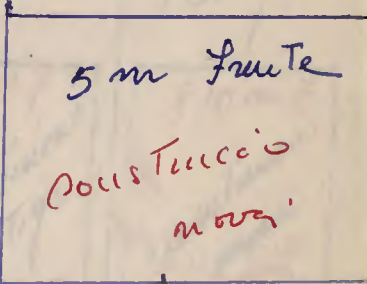 5 m frente
construcció
nova